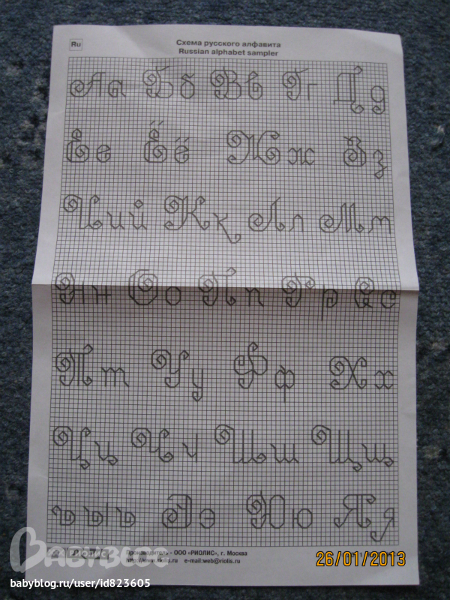 Ru
Схема русского алфавита
Russian alphabet sampler
Аа Бб Вв Гг Дд
Ее Ёё Жж Зз
Ии й Кк Лл Мм
Нн Оо Пп Рр Сс
Тт Уу Фф Хх
Цц Чч Шш Щщ
ъ ы ь Ээ Юю Яя
Производитель - ООО «РИОЛИС», г. Москва
e-mail:
26/01/2013
babyblog.ru/user/id823605